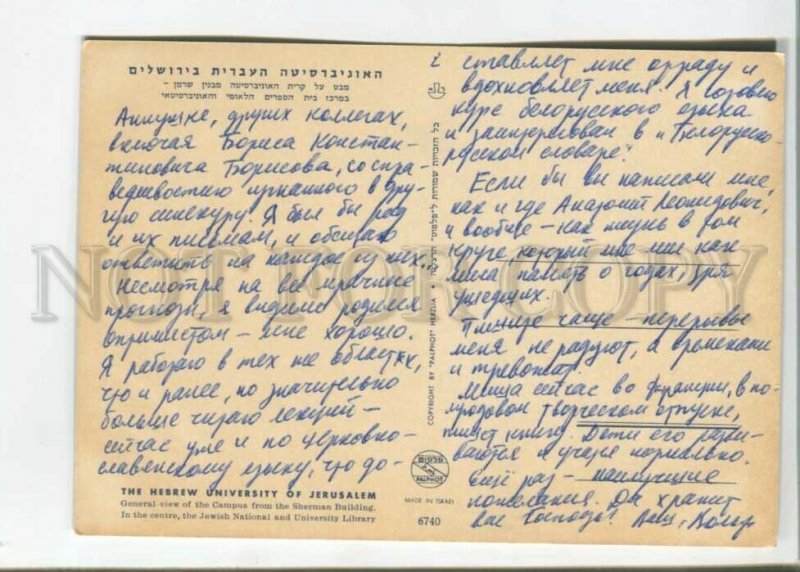 האוניברסיטה העברית בירושלים
מבט על קרית האוניברסיטה מבנין שרמן -
במרכז בית הספרים הלאומי והאוניברסיטאי
Аннушке, других коллегах,
включая Бориса Констан-
тиновича Борисова, со спра-
ведливостию изгнанного в дру-
гую синекуру! Я был бы рад
и их письмам, и обещаю
ответить на каждое из них.
Несмотря на все мрачные
прогнозы, я видимо родился
оптимистом – мне хорошо.
Я работаю в тех же областях,
что и ранее, но значительно
больше читаю лекций –
сейчас уже и по церковно-
славянскому языку, что до-
THE HEBREW UNIVERSITY OF JERUSALEM
General view of the Campus from the Sherman Building.
In the centre, the Jewish National and University Library
כל הזכויות שמורות ל"פלפוט" הרצליה
COPYRIGHT BY "PALPHOT" HERZLIA
פלפוט
PALPHOT
MADE IN ISRAEL
6740
2
ставляет мне отраду и
вдохновляет меня. Я готовлю
курс белорусского языка
и заинтересован в „Белорусско-
русском словаре".
Если бы вы написали мне,
как и где Анатолий Леонидович,
и вообще – как жизнь в том
круге, который мне мил как
память о годах, зря
ушедших.
Пишите чаще – перерывы
меня не радуют, а временами
и тревожат.
Миша сейчас во Франции, в по-
лугодовом творческом отпуске,
пишет книгу. Дети его разви-
ваются и учатся нормально.
Ещё раз – наилучшие
пожелания. Да хранит
вас Господь! Ваш,
NOT FOR COPY